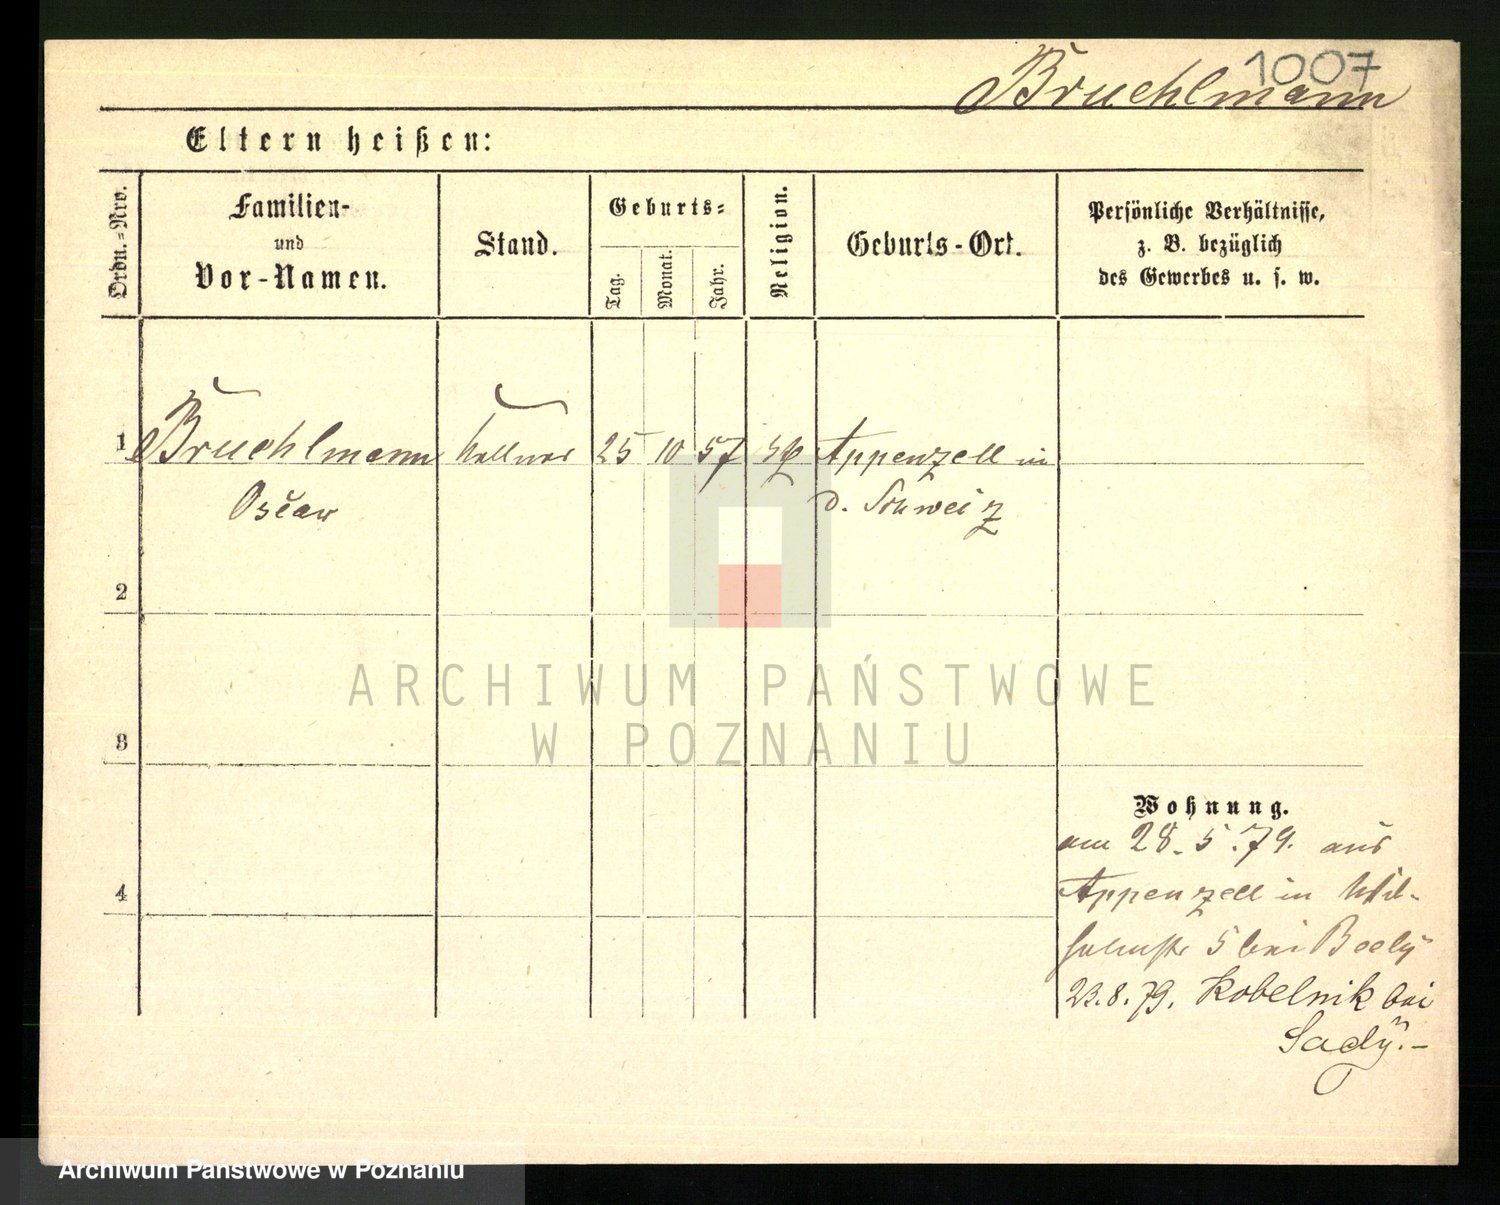 1007
Bruehlmann
Eltern heißen:
Ordn.-Nro.
Familien-
und
Vor-Namen.
Stand.
Geburts-
Tag.
Monat.
Jahr.
Religion.
Geburts-Ort.
Persönliche Verhältnisse,
z. B. bezüglich
des Gewerbes u. s. w.
1 Bruehlmann Kellner 25 10 57 Appenzell in
Oscar d. Schweiz
2
3
4
ARCHIWUM PAŃSTWOWE
W POZNANIU
Wohnung.
am 28. 5. 79. aus
Appenzell in Wil-
helmstr 5 bei Beely
23.8.79. Kobelnik bei
Sady.-
Archiwum Państwowe w Poznaniu